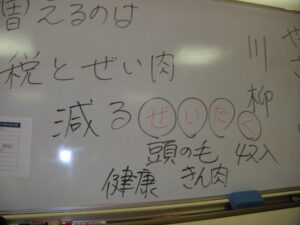 増えるのは
税とぜい肉
減るぜいたく
頭の毛 収入
健康 きん肉
川柳